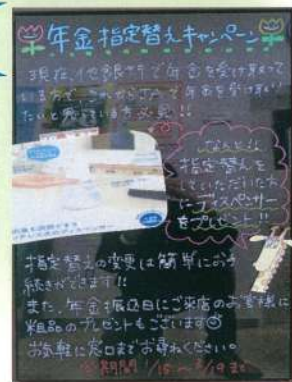 年金指定替えキャンペーン
現在、他銀行で年金を受け取って
いる方で、これからJAで年金を受け取り
たいと思っている方必見!!
なんと!!
指定替えを
していただいた方
にディスペンサー
をプレゼント!!
指定替えの変更は簡単にお手
続きができます!!
また、年金振込日にご来店のお客様に
粗品のプレゼントもございます
お気軽に窓口までお尋ねください。
期間 1/15~3/19まで